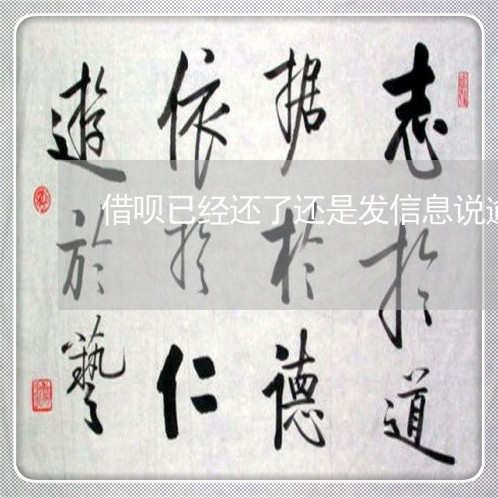 志於道
据於德
依於仁
遊於藝
借呗已经还了还是发信息说